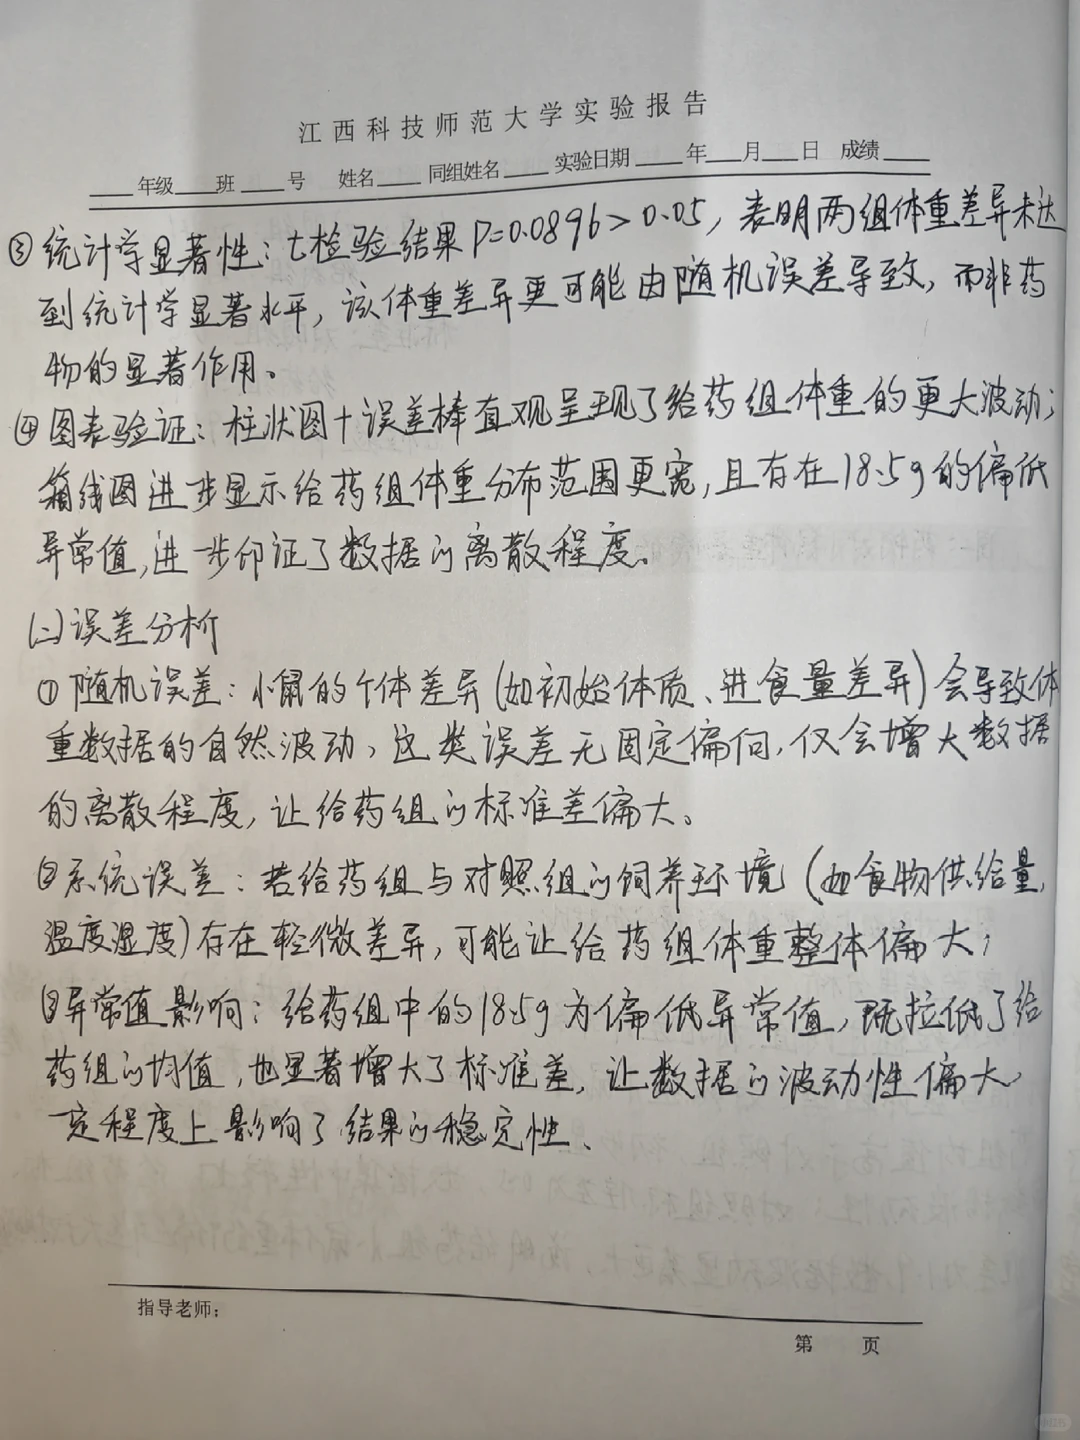 江西科技师范大学实验报告
年级 班 号 姓名 同组姓名 实验日期 年 月 日 成绩
③统计学显著性：t检验结果P=0.0896>0.05，表明两组体重差异未达
到统计学显著水平，该体重差异更可能由随机误差导致，而非药
物的显著作用。
④图表验证：柱状图+误差棒直观呈现了给药组体重的更大波动；
箱线图进步显示给药组体重分布范围更宽，且存在18.5g的偏低
异常值，进一步印证了数据的离散程度。
(二)误差分析
①随机误差：小鼠的个体差异(如初始体质、进食量差异)会导致体
重数据的自然波动，这类误差无固定偏向，仅会增大数据
的离散程度，让给药组的标准差偏大。
②系统误差：若给药组与对照组的饲养环境(如食物供给量，
温度湿度)存在轻微差异，可能让给药组体重整体偏大；
③异常值影响：给药组中的18.5g为偏低异常值，既拉低了给
药组的均值，也显著增大了标准差，让数据的波动性偏大，
一定程度上影响了结果的稳定性、
指导老师：
第 页